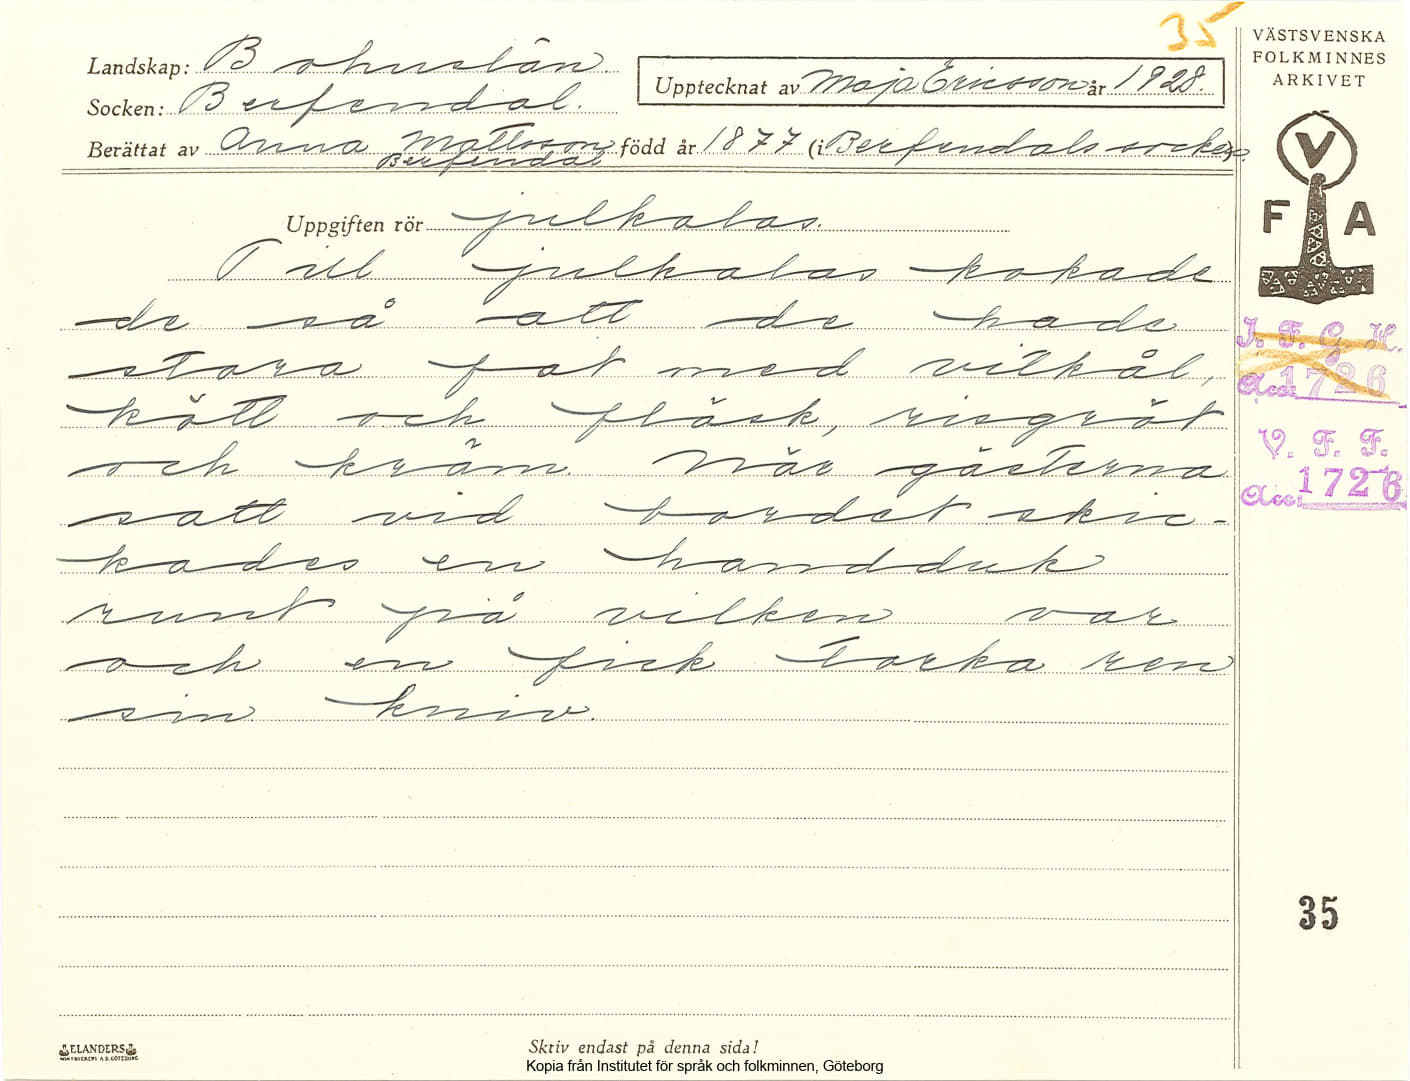 35
Landskap: Bohuslän
Socken: Berfendal.
Upptecknat av Maja Ericsson år 1928.
Berättat av Anna Mattsson född år 1877 (i Berfendals socken)
Berfendal
Uppgiften rör julkalas.
Till julkalas kokade
de så att de hade
stora fat med vitkål,
kött och fläsk, risgröt
och kräm. När gästerna
satt vid bordet skic-
kades en handduk
runt på vilken var
och en fick torka ren
sin kniv.
VÄSTSVENSKA
FOLKMINNES
ARKIVET
V
F A
I. F. G. H.
Acc: 1726
V. F. F.
Acc: 1726
35
ELANDERS
Skriv endast på denna sida!
Kopia från Institutet för språk och folkminnen, Göteborg